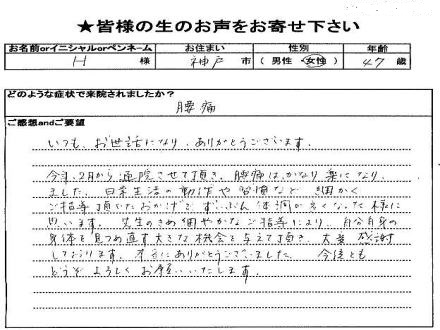 ★皆様の生のお声をお寄せ下さい
お名前orイニシャルorペンネーム お住まい 性別 年齢
H 様 神戸 市 (男性・女性) 47 歳
どのような症状で来院されましたか?
腰痛
ご感想andご要望
いつも、お世話になり、ありがとうございます。
今年、2月から通院させて頂き、腰痛は、かなり楽になり
ました。日常生活の動作や習慣など細かく
ご指導頂いたおかげで、ずいぶん体調が良くなった様に
思います。先生のきめ細やかなご指導により、自分自身の
身体を見つめ直す大きな機会を与えて頂き、大変感謝
しております。本当にありがとうございました。今後とも
どうぞよろしくお願いいたします。